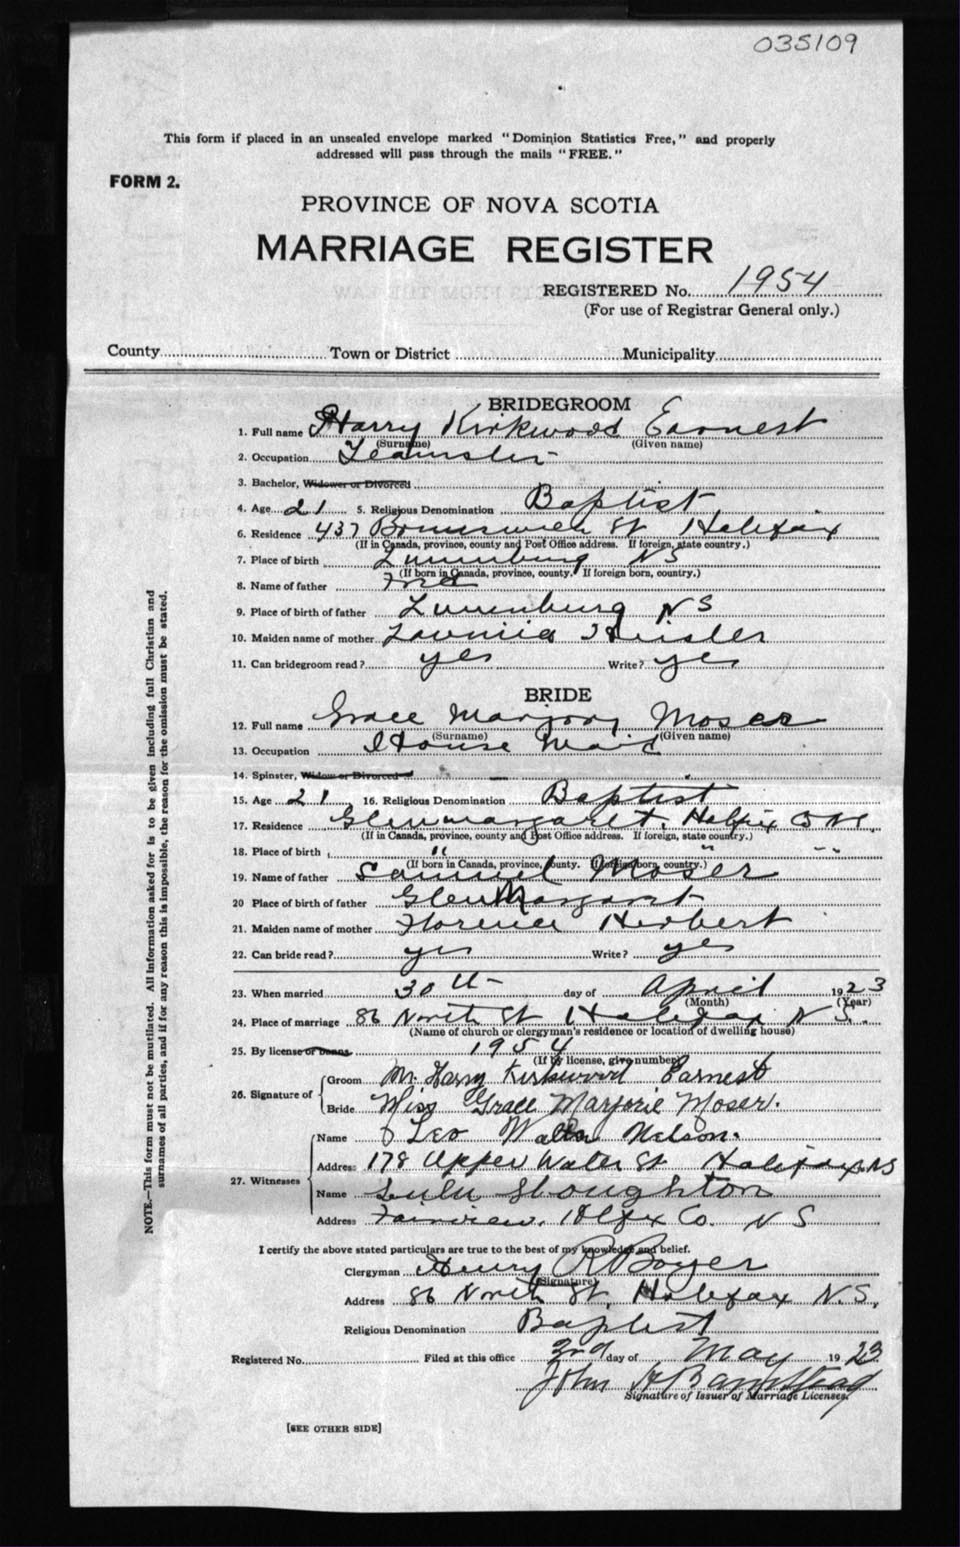 035109
This form if placed in an unsealed envelope marked "Dominion Statistics Free," and properly
addressed will pass through the mails "FREE."
FORM 2.
PROVINCE OF NOVA SCOTIA
MARRIAGE REGISTER
REGISTERED No. 1954
(For use of Registrar General only.)
County Town or District Municipality
BRIDEGROOM
1. Full name Harry Kirkwood Earnest
(Surname) (Given name)
2. Occupation Teamster
3. Bachelor, Widower or Divorced
4. Age 21 5. Religious Denomination Baptist
6. Residence 437 Brunswick St Halifax
(If in Canada, province, county and Post Office address. If foreign, state country.)
7. Place of birth Lunenburg NS
(If born in Canada, province, county. If foreign born, country.)
8. Name of father Fred
9. Place of birth of father Lunenburg NS
10. Maiden name of mother Lavinia Heisler
11. Can bridegroom read? yes Write? yes
BRIDE
12. Full name Grace Marjory Moser
(Surname) (Given name)
13. Occupation House Maid
14. Spinster, Widow or Divorced
15. Age 21 16. Religious Denomination Baptist
17. Residence Glenmargaret, Halifx Co NS,
(If in Canada, province, county and Post Office address. If foreign, state country.)
18. Place of birth " " "
(If born in Canada, province, county. If foreign born, country.)
19. Name of father Samuel Moser
20 Place of birth of father Glen Margaret
21. Maiden name of mother Florence Herbert
22. Can bride read? yes Write? yes
23. When married 30th day of April 1923
(Month) (Year)
24. Place of marriage 86 North St Halifax N S.
(Name of church or clergyman's residence or location of dwelling house)
25. By license or banns 1954
(If by license, give number)
26. Signature of Groom Mr. Harry Kirkwood Earnest
Bride Miss Grace Marjorie Moser.
27. Witnesses Name Leo Walter Nelson.
Address 178 Upper Water St Halifax NS
Name Lulu Stoughton
Address Fairview, Hlfx Co. N S
I certify the above stated particulars are true to the best of my knowledge and belief.
Clergyman Henry R Boyer
(Signature)
Address 86 North St, Halifax N.S.
Religious Denomination Baptist
Registered No. Filed at this office 3rd day of May 1923
John H Barnstead
Signature of Issuer of Marriage Licenses.
[SEE OTHER SIDE]
NOTE.—This form must not be mutilated. All information asked for is to be given including full Christian and
surnames of all parties, and if for any reason this is impossible, the reason for the omission must be stated.